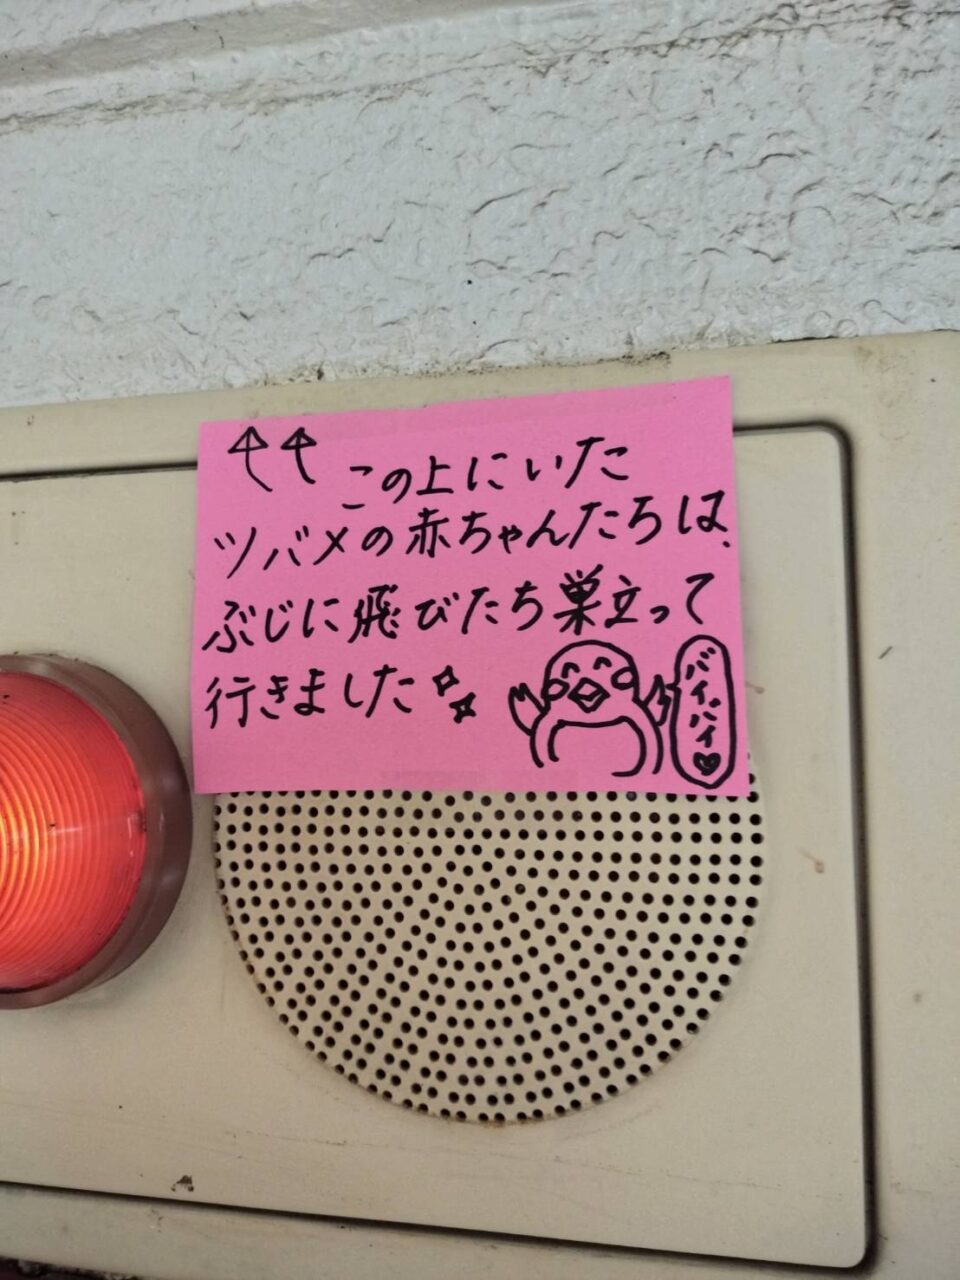 この上にいた
ツバメの赤ちゃんたちは、
ぶじに飛びたち巣立って
行きました
バイバイ♡